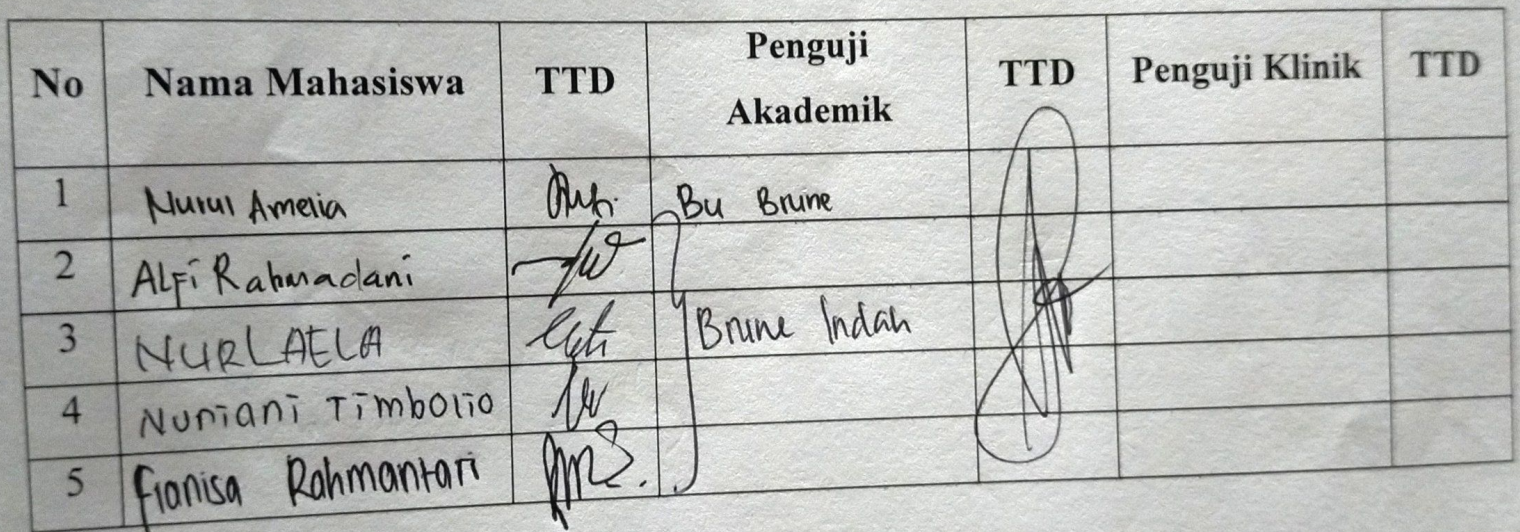 No Nama Mahasiswa TTD Penguji Akademik TTD Penguji Klinik TTD
1 Nurul Amelia Bu Brune
2 ALFi Rahmadani
3 NURLAELA Brune Indah
4 Nuriani Timbolio
5 Fianisa Rahmantari